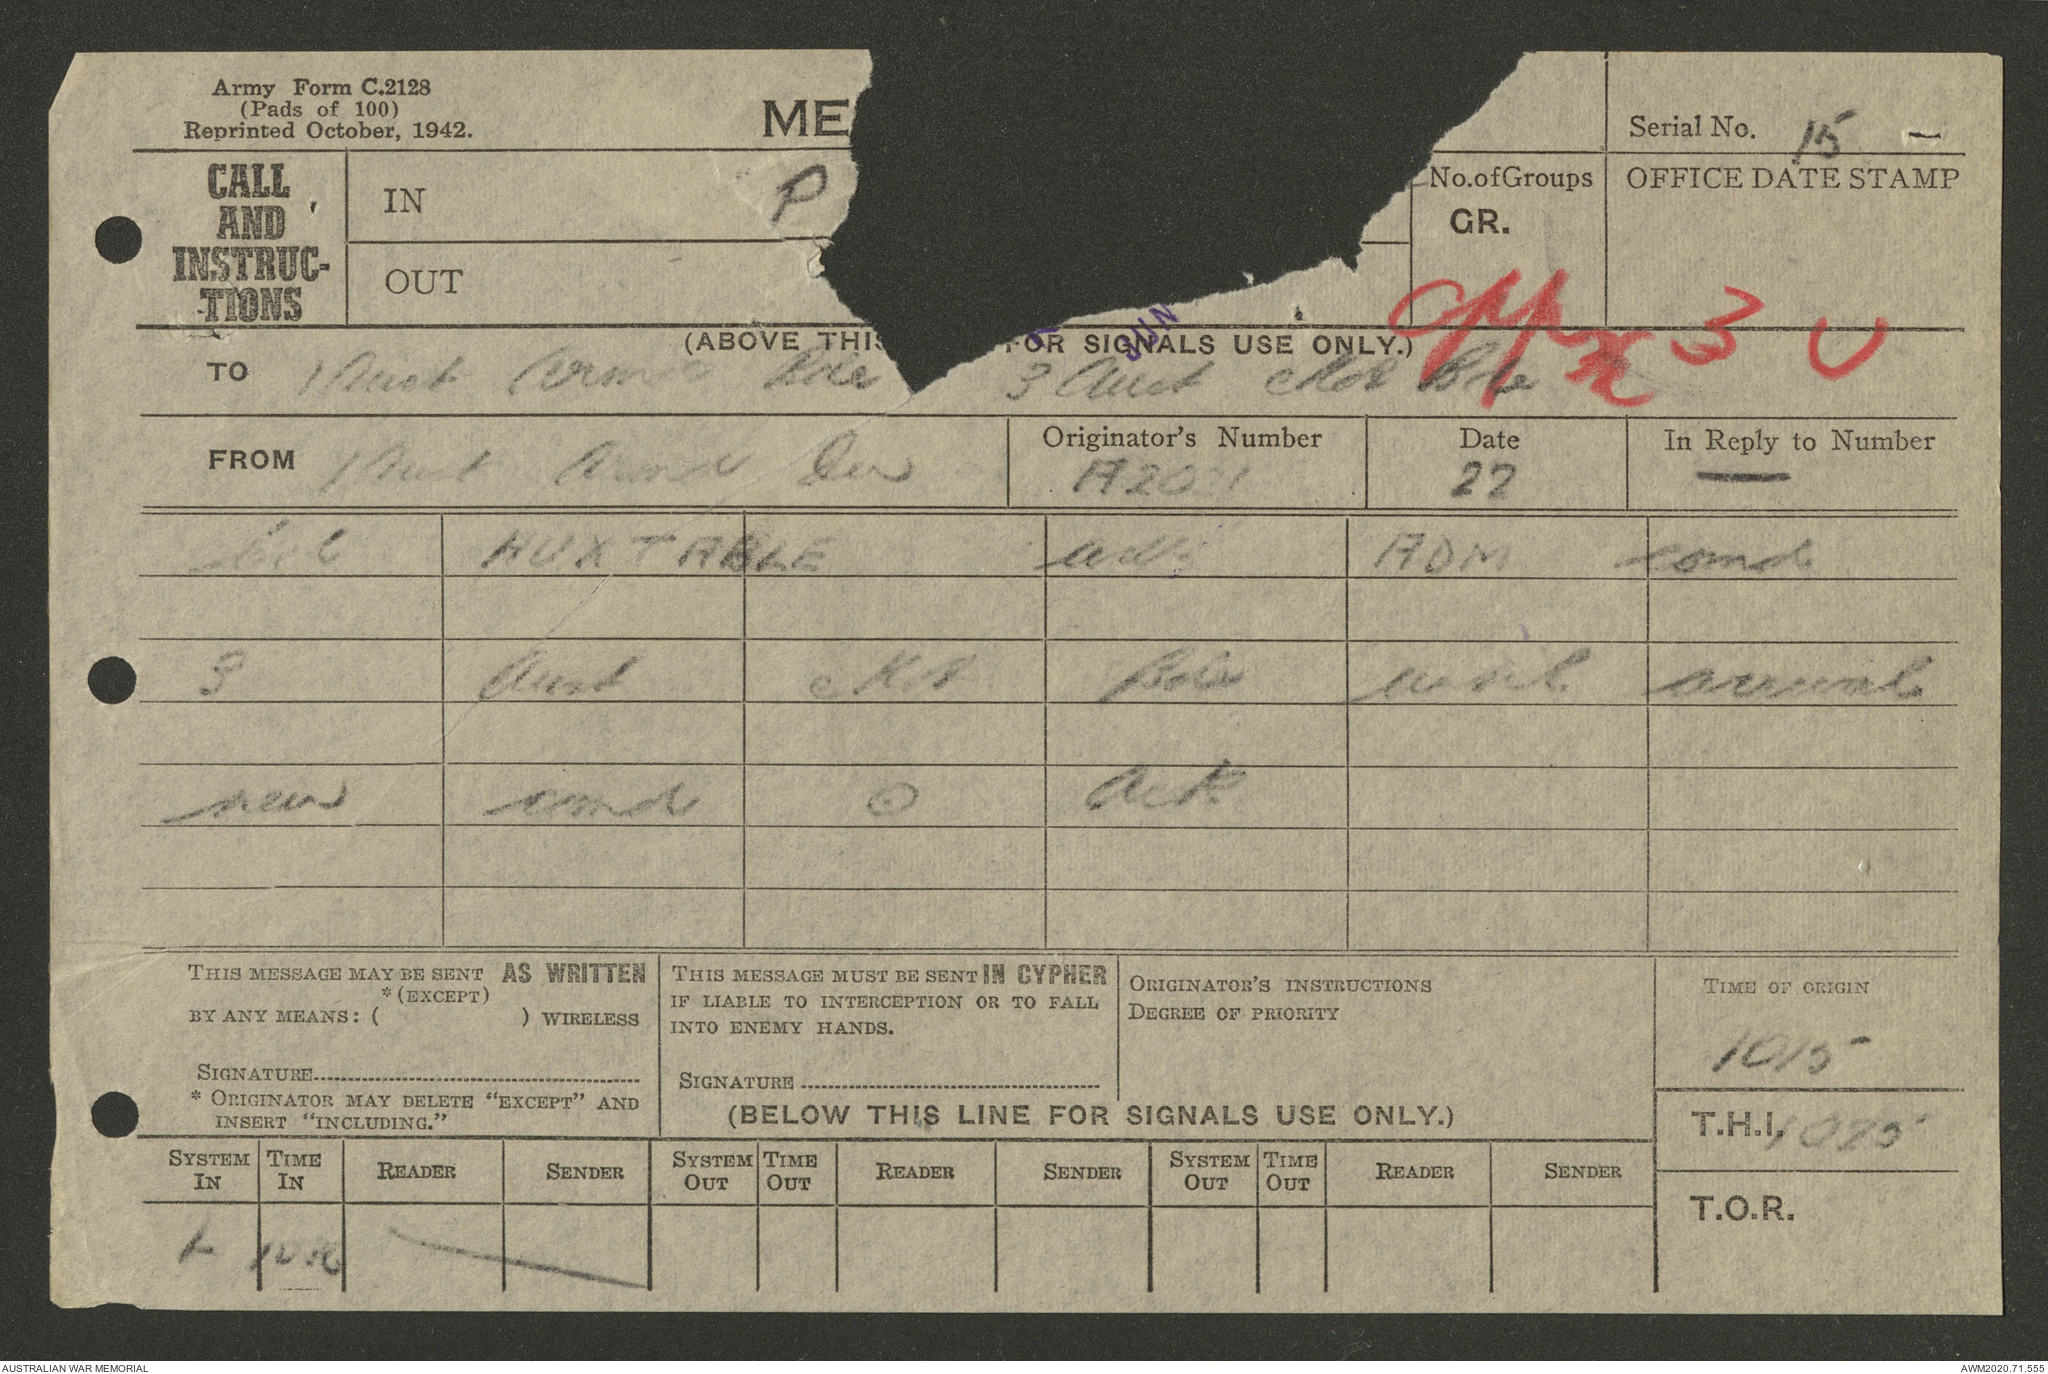 Army Form C.2128
(Pads of 100)
Reprinted October, 1942.
ME
Serial No. 15
CALL
AND
INSTRUC-
TIONS
IN P
OUT
No. of Groups
GR.
OFFICE DATE STAMP
Appx 3 U
JUN
(ABOVE THIS FOR SIGNALS USE ONLY.)
TO 1 Aust Armd Bde 3 Aust Mot Bde
FROM 1 Aust Armd Div
Originator's Number
Date
22
In Reply to Number
—
HUXTABLE ADM comd
3 Aust Mot Bde until arrival
new comd ⊙ Ack
THIS MESSAGE MAY BE SENT AS WRITTEN
*(EXCEPT)
BY ANY MEANS: ( ) WIRELESS
SIGNATURE
* ORIGINATOR MAY DELETE "EXCEPT" AND
INSERT "INCLUDING."
THIS MESSAGE MUST BE SENT IN CYPHER
IF LIABLE TO INTERCEPTION OR TO FALL
INTO ENEMY HANDS.
SIGNATURE
ORIGINATOR'S INSTRUCTIONS
DEGREE OF PRIORITY
TIME OF ORIGIN
1015
(BELOW THIS LINE FOR SIGNALS USE ONLY.)
T.H.I. 1025
T.O.R.
SYSTEM IN TIME IN READER SENDER SYSTEM OUT TIME OUT READER SENDER SYSTEM OUT TIME OUT READER SENDER
AUSTRALIAN WAR MEMORIAL
AWM2020.71.555